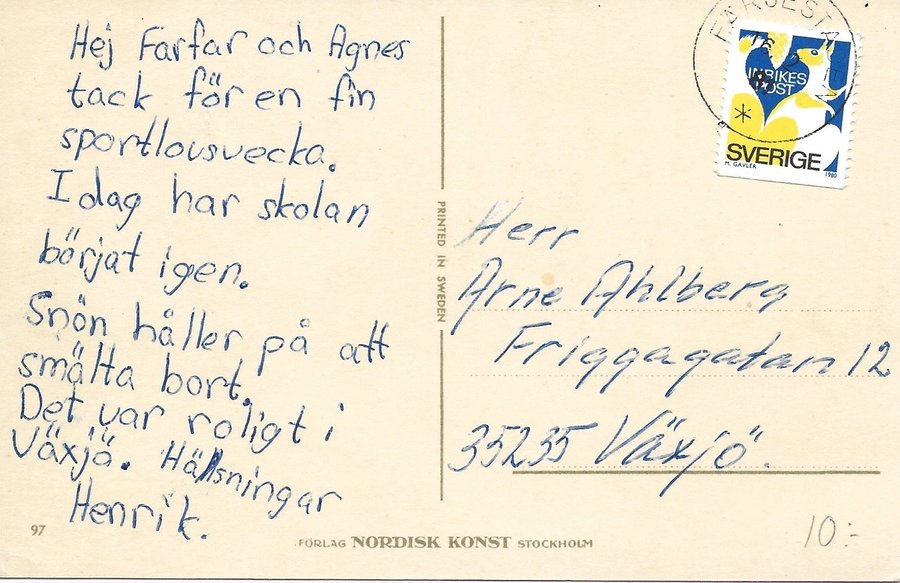 Hej Farfar och Agnes
tack för en fin
sportlovsvecka.
I dag har skolan
börjat igen.
Snön håller på att
smälta bort.
Det var roligt i
Växjö. Hälsningar
Henrik.
97
PRINTED IN SWEDEN
FÖRLAG NORDISK KONST STOCKHOLM
INRIKES
POST
SVERIGE
M. GAVLER 1980
Herr
Arne Ahlberg
Friggagatan 12
35235 Växjö.
10:-